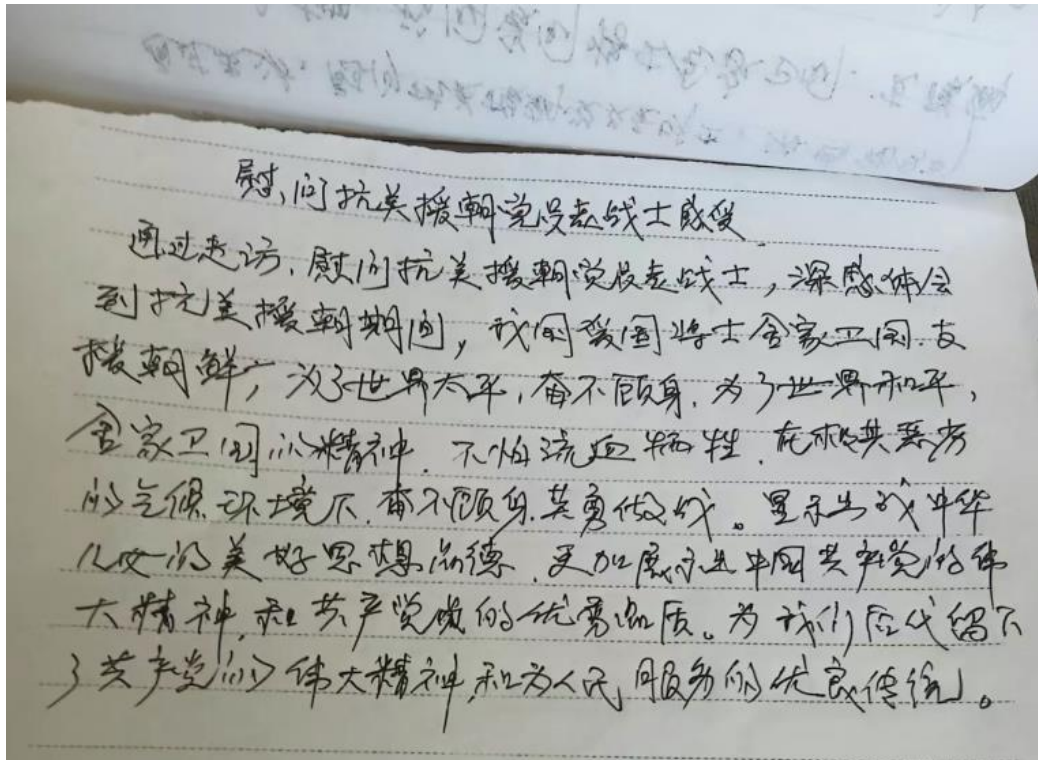 慰问抗美援朝党员老战士感受
通过走访、慰问抗美援朝党员老战士，深感体会
到抗美援朝期间，我国爱国将士舍家卫国、支
援朝鲜，为了世界太平，奋不顾身、为了世界和平，
舍家卫国的精神、不怕流血牺牲、在极其恶劣
的气候环境下、奋不顾身、英勇做战。显示出我中华
儿女的美好思想品德、更加展示出中国共产党的伟
大精神、和共产党员的优秀品质。为我们后代留下
了共产党的伟大精神，和为人民服务的优良传统。